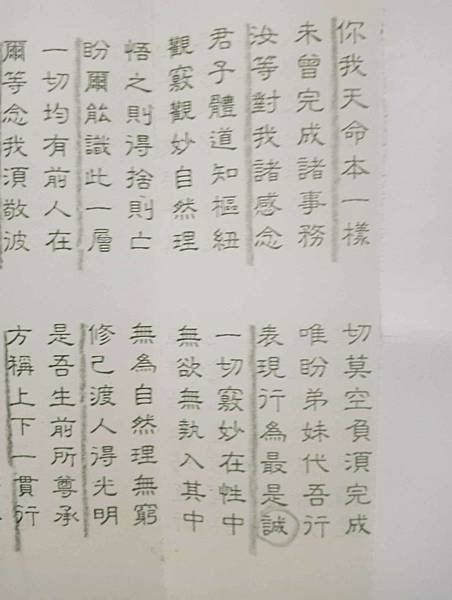 你我天命本一樣
切莫空負須完成
未曾完成諸事務
唯盼弟妹代吾行
汝等對我諸感念
表現行為最是誠
君子體道知樞紐
一切竅妙在性中
觀竅觀妙自然理
無欲無執入其中
悟之則得捨則亡
無為自然理無窮
盼爾能識此一層
修己渡人得光明
一切均有前人在
是吾生前所尊承
爾等念我須敬波
方稱上下一貫行